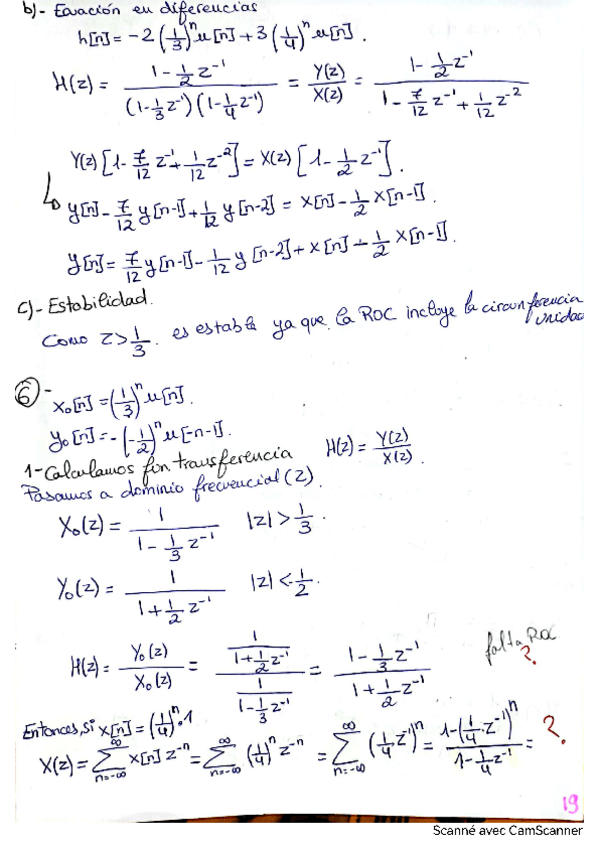 b)- Ecuación en diferencias
h[n] = -2(1/3)^n u[n] + 3(1/4)^n u[n].
H(z) = (1 - 1/2 z^-1) / ((1 - 1/3 z^-1)(1 - 1/4 z^-1)) = Y(z)/X(z) = (1 - 1/2 z^-1) / (1 - 7/12 z^-1 + 1/12 z^-2)
Y(z)[1 - 7/12 z^-1 + 1/12 z^-2] = X(z)[1 - 1/2 z^-1].
↳ y[n] - 7/12 y[n-1] + 1/12 y[n-2] = x[n] - 1/2 x[n-1].
y[n] = 7/12 y[n-1] - 1/12 y[n-2] + x[n] - 1/2 x[n-1].
c)- Estabilidad.
Como z > 1/3. es estable ya que la ROC incluye la circunferencia
unidad
6 -
x₀[n] = (1/3)^n u[n].
y₀[n] = -(-1/2)^n u[-n-1].
1- Calculamos fun transferencia H(z) = Y(z)/X(z).
Pasamos a dominio frecuencial (z).
X₀(z) = 1 / (1 - 1/3 z^-1) |z| > 1/3.
Y₀(z) = 1 / (1 + 1/2 z^-1) |z| < 1/2.
H(z) = Y₀(z)/X₀(z) = (1 / (1 + 1/2 z^-1)) / (1 / (1 - 1/3 z^-1)) = (1 - 1/3 z^-1) / (1 + 1/2 z^-1) falta ROC ?
Entonces, si x[n] = (1/4)^n · 1
X(z) = ∑_{n=-∞}^{∞} x[n] z^-n = ∑_{n=-∞}^{∞} (1/4)^n z^-n = ∑_{n=-∞}^{∞} (1/4 z^-1)^n = (1 - (1/4 z^-1)^n) / (1 - 1/4 z^-1) = ?
19
Scanné avec CamScanner